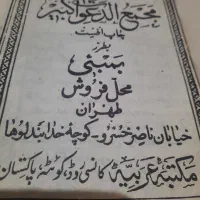 مجمع الدعوات کبیر
چاپ افسٹ
بطرز
بمبئی
محل فروش
طهران
خیابان ناصر خسرو - کوچه حاج
مکتبه عربیه کانسی روڈ، کوئٹہ، پاکستان